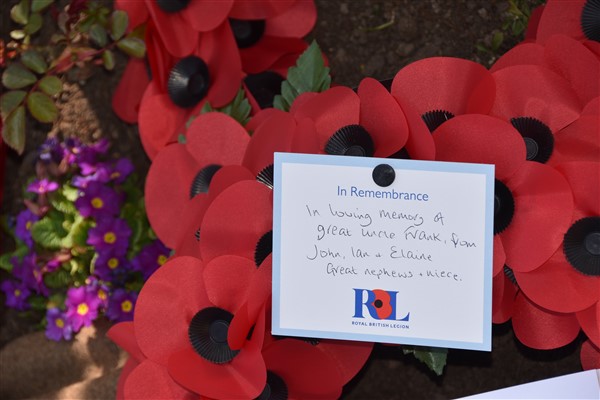 In Remembrance
In loving memory of
great uncle Frank, from
John, Ian + Elaine
Great nephews + niece.
RBL
ROYAL BRITISH LEGION